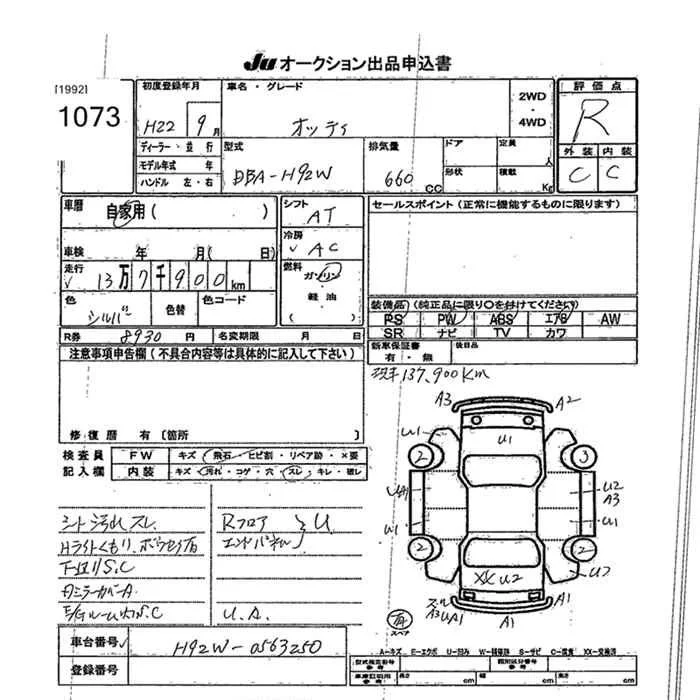 JU オークション出品申込書
[1992]
1073
初度登録年月
H22 9月
車名・グレード
オッティ
2WD
・
4WD
評価点
R
ディーラー・並行
モデル年式 年
ハンドル 左・右
型式
DBA-H92W
排気量
660 CC
ドア
形状
定員
人
積載
Kg
外装 内装
C C
車歴
自家用( )
シフト
AT
セールスポイント(正常に機能するものに限ります)
車検 年 月( 日)
冷房
AC
走行
13万7千900km
燃料
ガソリン
・
軽油
( )
色
シルバー
色替
色コード
装備品(純正品に限り〇を付けてください)
PS PW ABS エアB AW
SR ナビ TV カワ
R券 8930円
名変期限 月 日
新車保証書
有・無
後日品
注意事項申告欄(不具合内容等は具体的に記入して下さい)
137,900Km
修復歴 有(箇所
検査員
記入欄
FW キズ・飛石・ヒビ割・リペア跡・×要
内装 キズ・汚れ・コゲ・穴・スレ・キレ・破レ
A3 A2
U1 U1
2 3
UA1 U2
A3
U1 U1
2 2
XX U2 U2
A3 UA1 A1 A1
有
スペア
シート汚れ スレ
Rフロア
エンドパネル U
Hライトくもり
S.C
ミラーカバーA
S.C
U.A.
車台番号 H92W-0563250
登録番号
A-キズ E-エクボ U-凹み W-補修跡 S-サビ C-腐食 XX-交換済
型式指定番号
参考
類別区分番号
参考
車庫証明用
参考
長さ cm
幅 cm
高さ cm